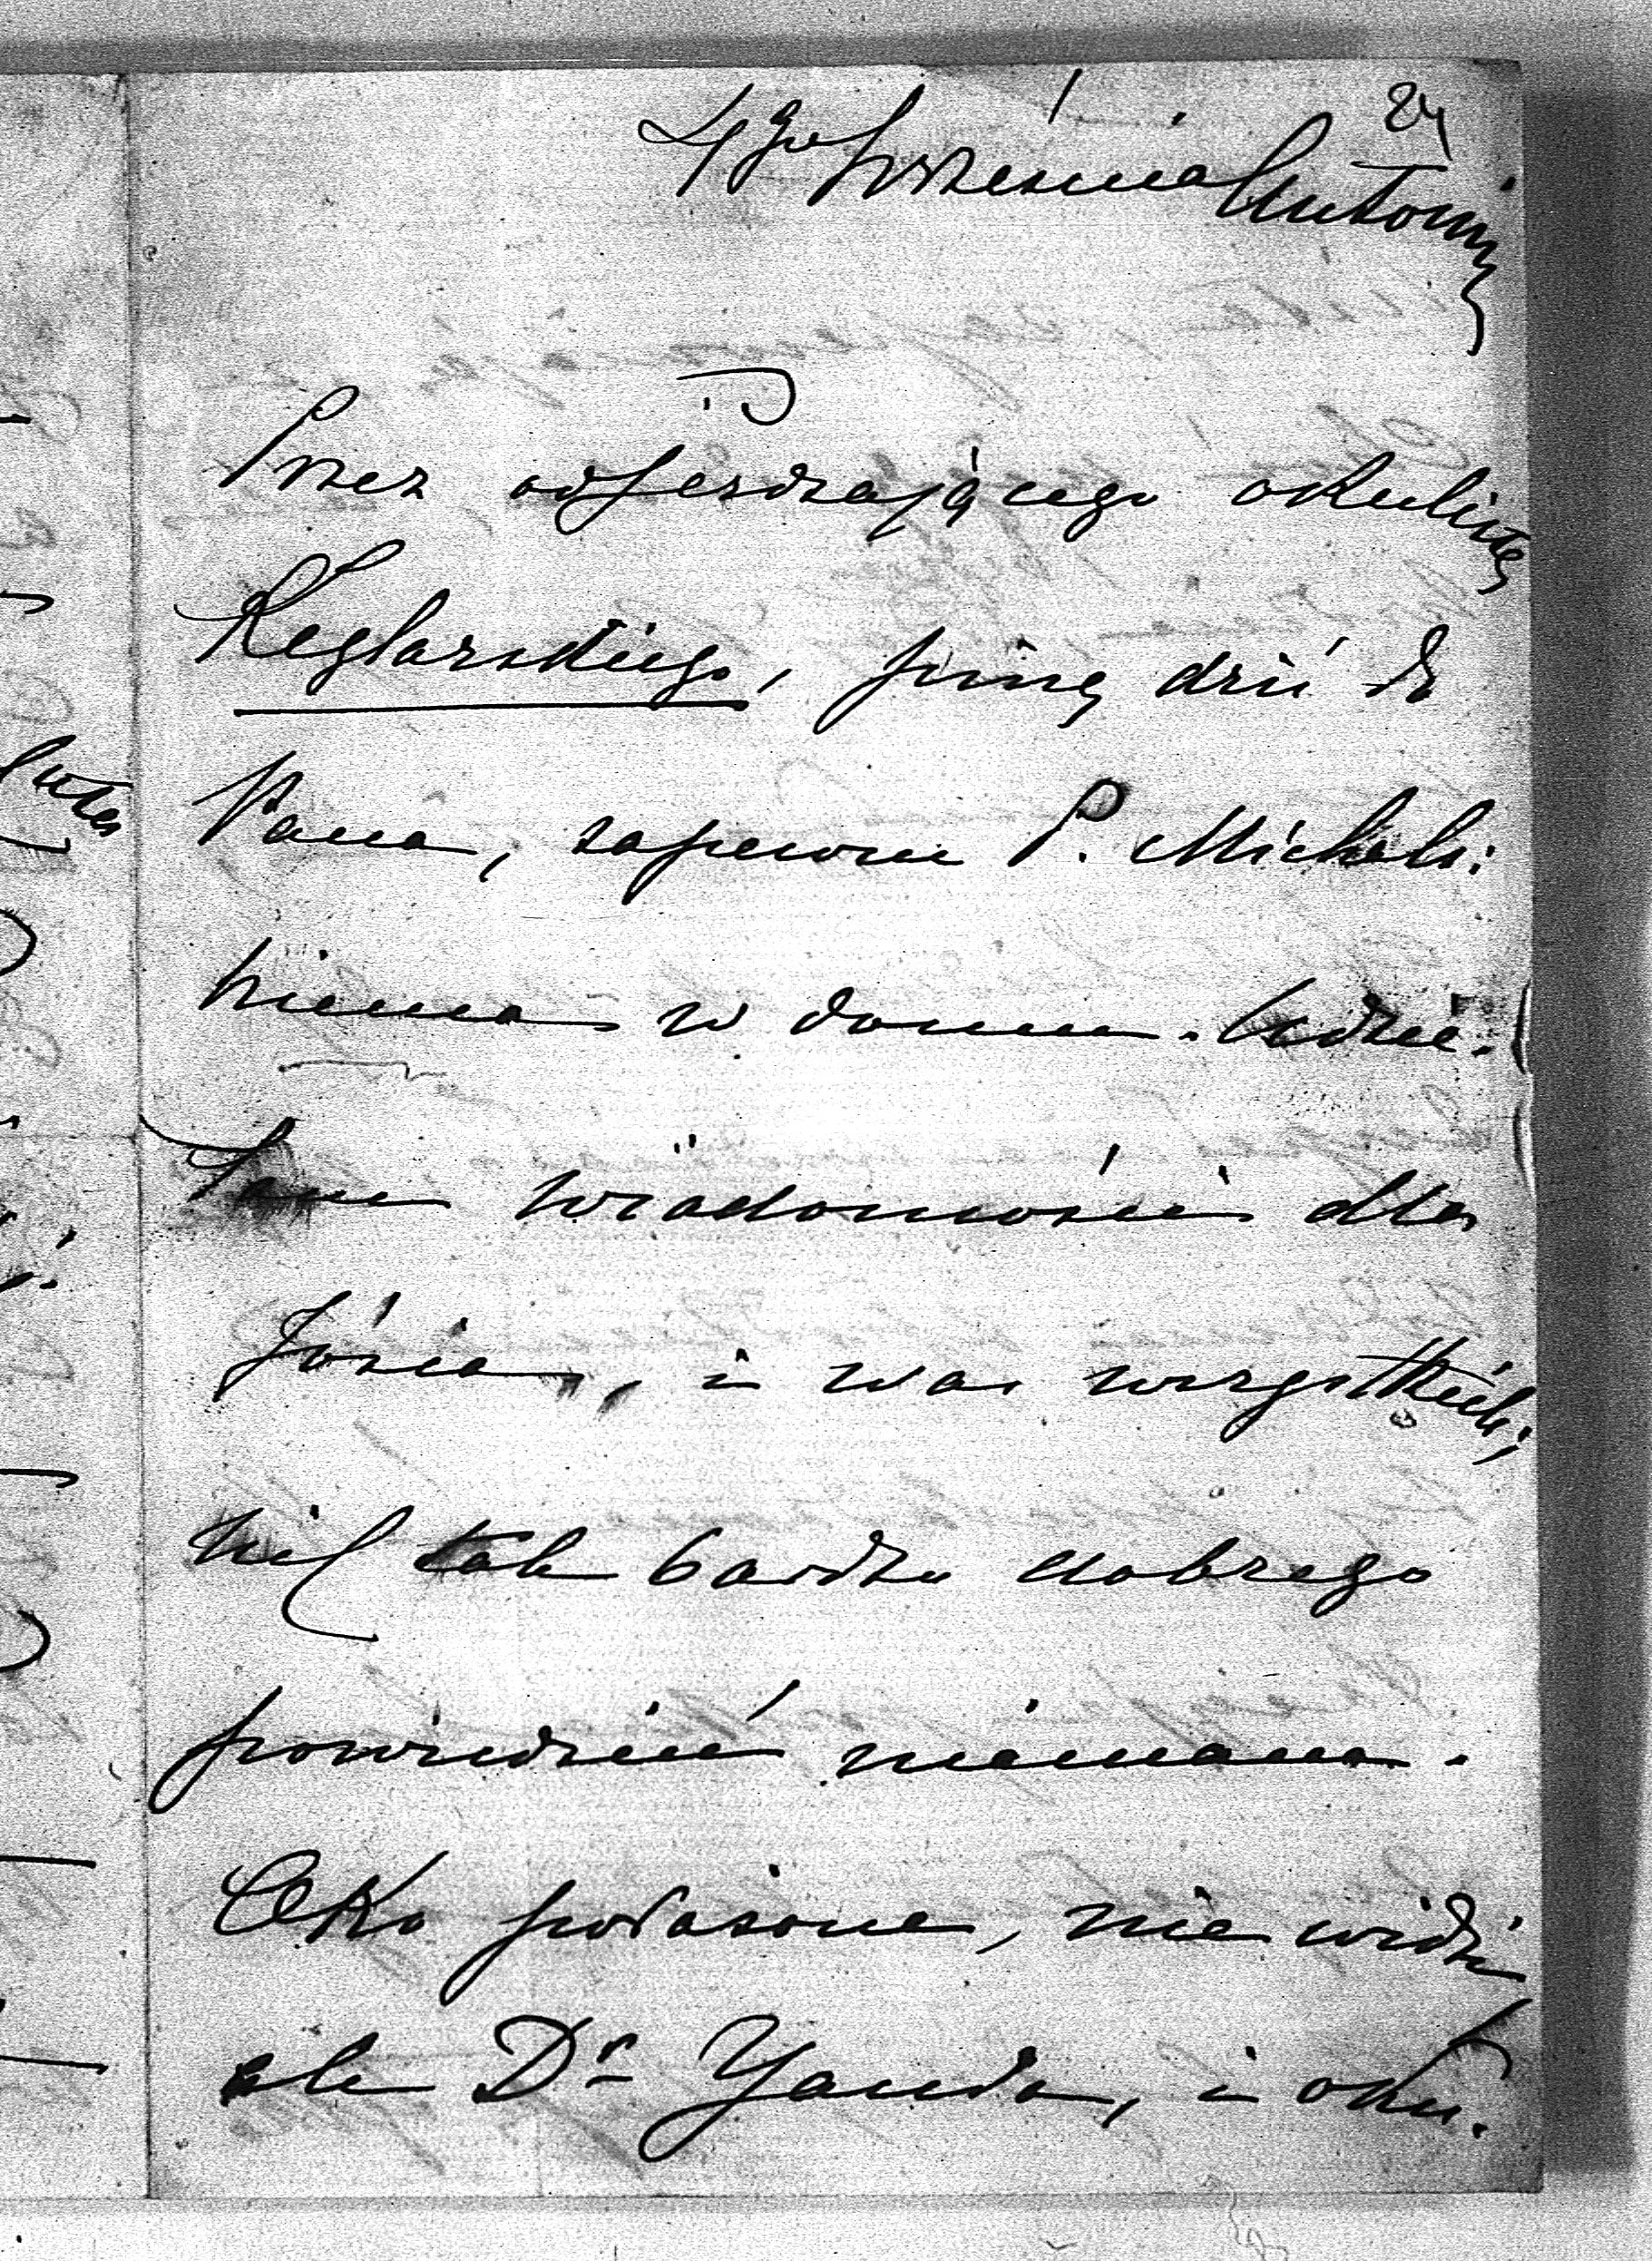 24
4go Września Antoniny
Przez odjeżdżającego okulistę
Keglarskiego, piszę dziś do
Pana, zapewne P. Michała
niema w domu. Udzie-
lam wiadomości dla
Józia, i was wszystkich,
nic tak bardzo dobrego
powiedzieć niemam.
Oko porażone, nie widzi
ale Dr Yanda, i oku-